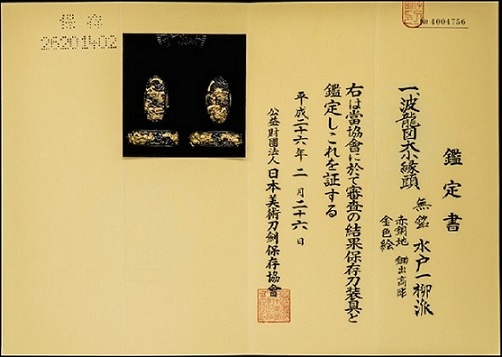 保存
26201402
№ 4004756
鑑定書
一、波龍図大小縁頭
無銘 水戸一柳派
赤銅地 鋤出高彫
金色絵
右は當協會に於て審査の結果保存刀装具と
鑑定しこれを証する
平成二十六年 二月二十六日
公益財團法人 日本美術刀劍保存協會